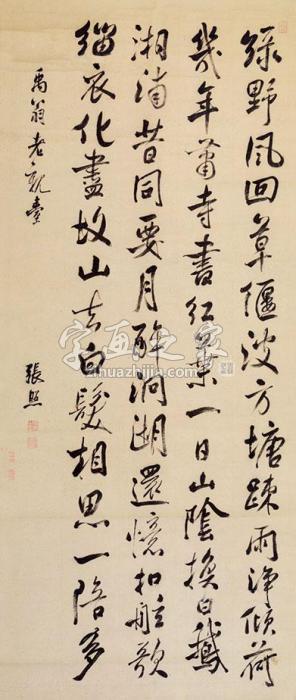 綠野風回草偃波方塘疎雨淨傾荷
幾年蕭寺書紅葉一日山陰換白鵝
湘浦昔同要月醉洞湖還憶扣舷歌
緇衣化盡故山去白髮相思一陪多
禹翁老親臺
張照
字画之家
zihuazhijia.com